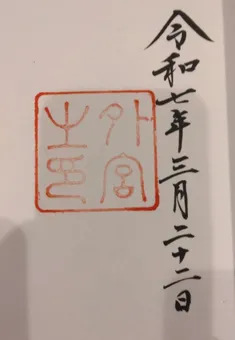 令和七年三月二十二日
外宮
之印